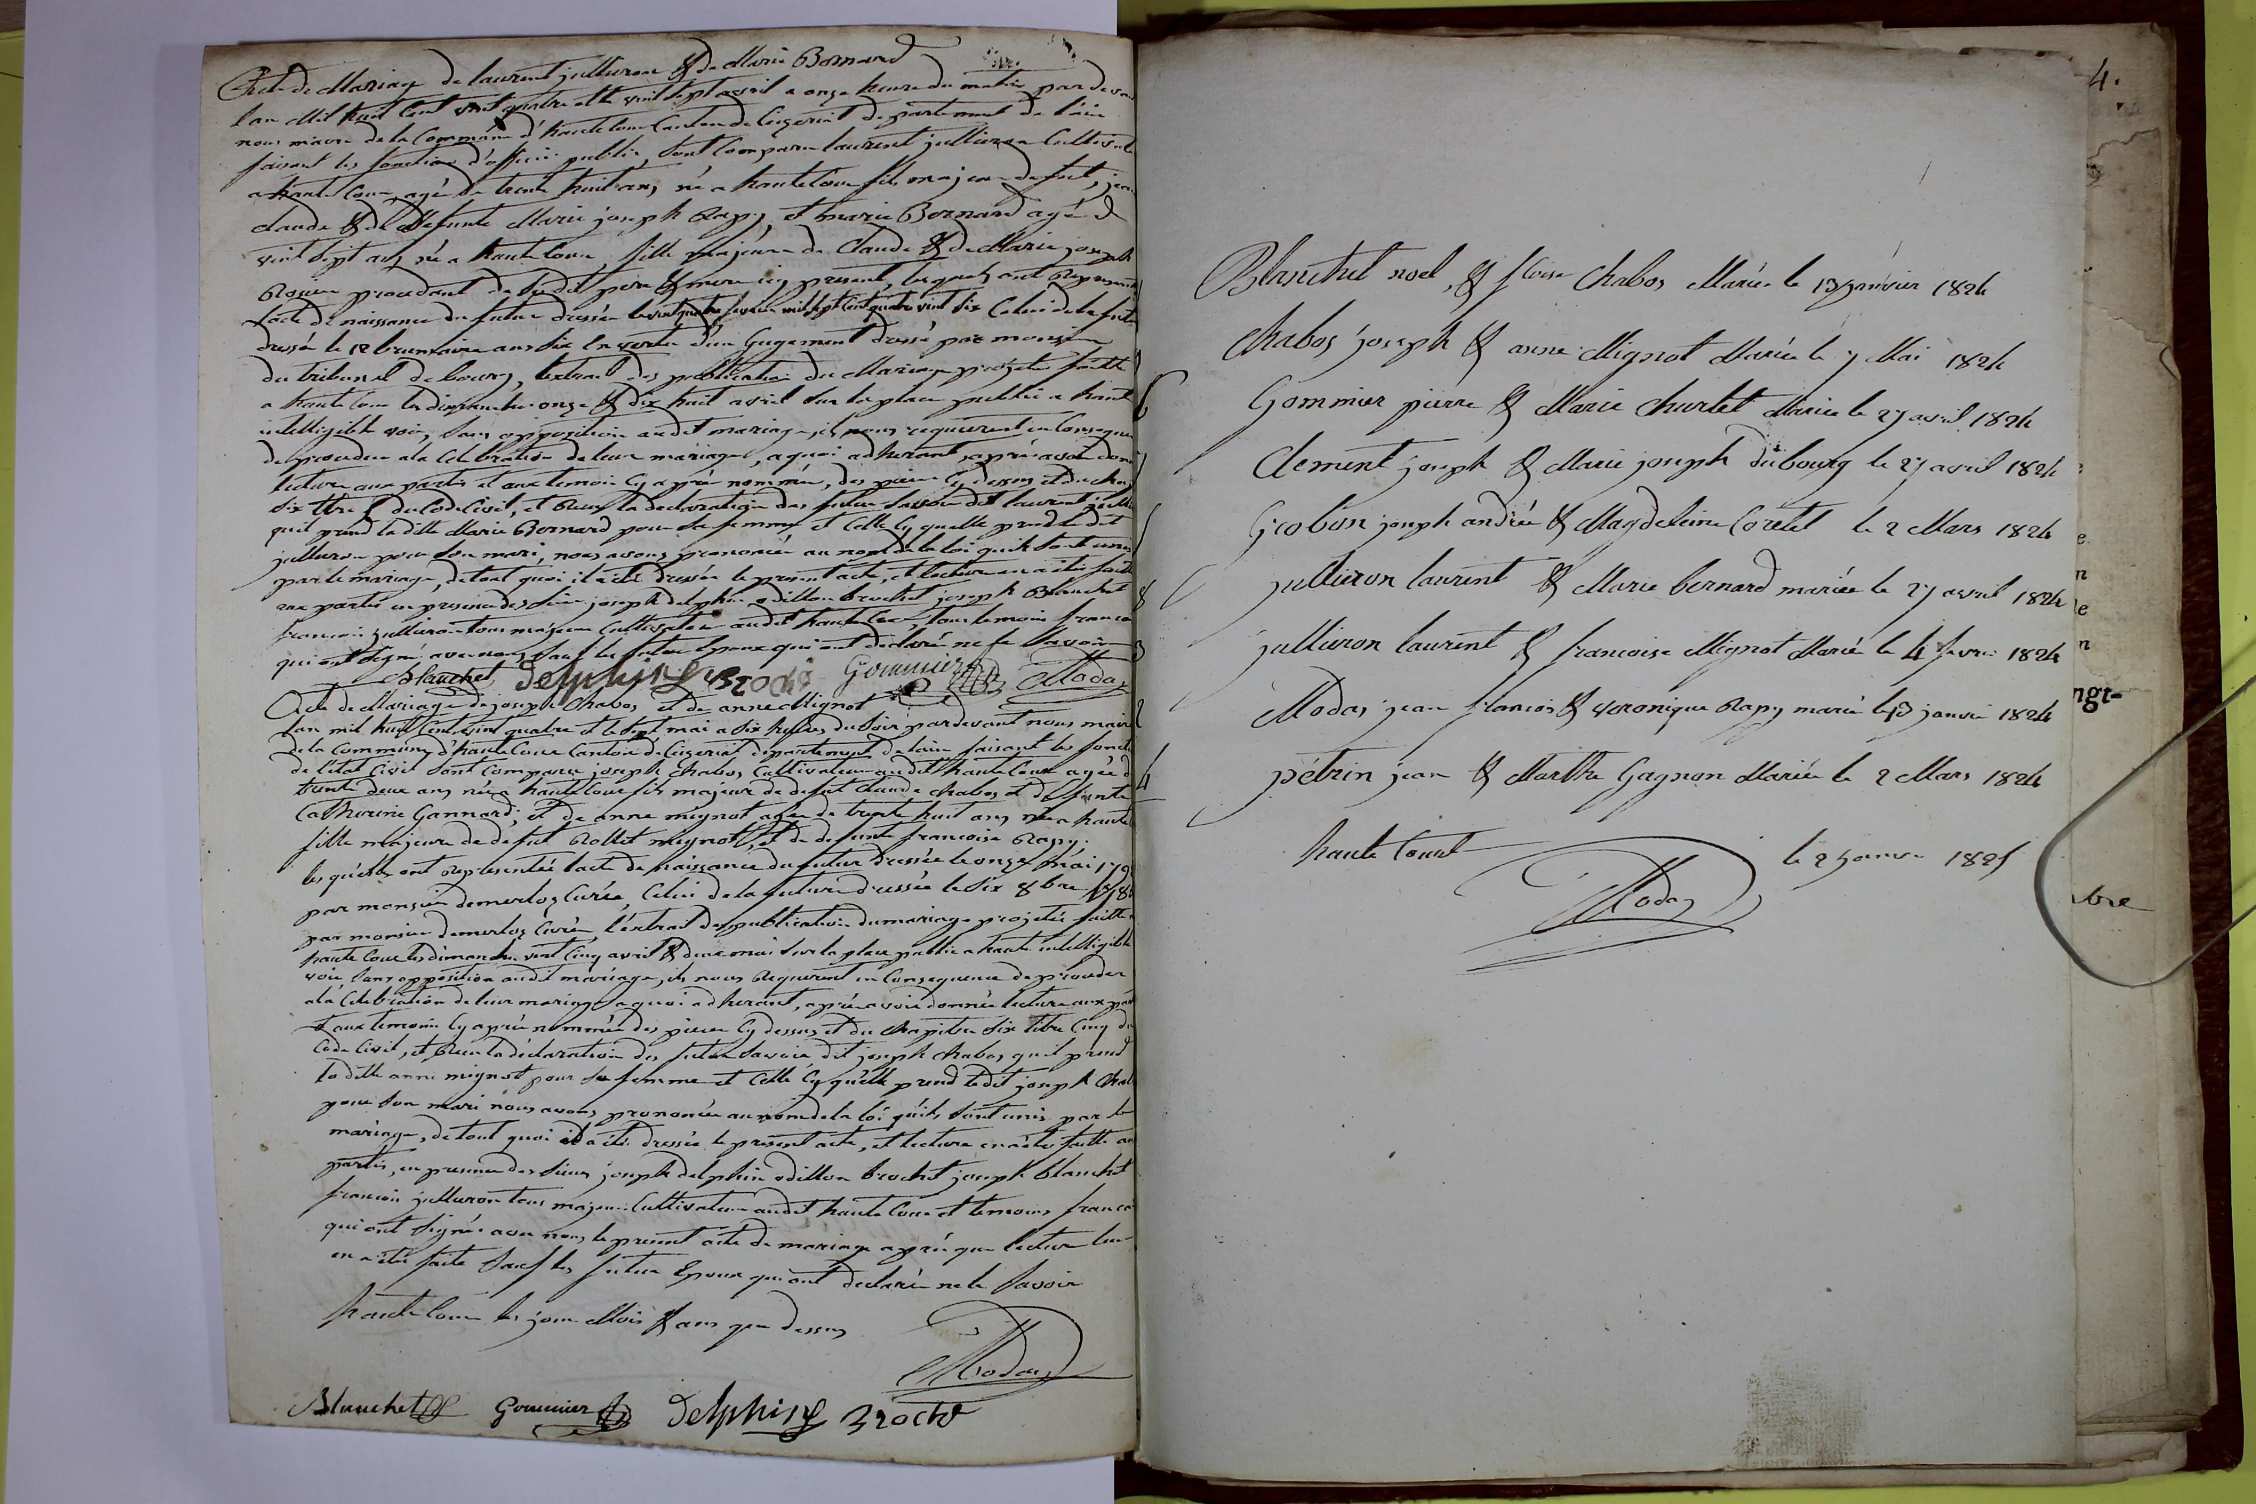 Acte de Mariage de laurent jullieron & de Marie Bornard
l'an Mil huit Cent vint quatre et le vint sept avril a onze heure du matin par devant
nous maire de la Commune d'hautecour Canton de Ceyzeriat departement de l'ain
faisant les fonctions d'officié public, sont Comparu laurent jullieron Cultivate
a haute Cour, agé de trente huit ans né a hautecour fils majeur de feut jean
claude & de defunte Marie joseph Rapy, et marie Bornard agé d
vint sept ans né a haute Cour, fille majeure de Claude & de Marie joseph
Rosier procedant de sudit pere & mere icy present, lesquels ont Representé
l'acte de naissance du futur dressée le vint quatre fevrier mil sept Cent quatre vint six Celui de la futur
dressée le 12 brumaire ans six En vertu d'un Gugement dressé par monsieur
du tribunal de bourg, lextrait des publication du Mariage projetée faitte
a haute Cour les dimanche onze & dix huit avril Sur la place publié a haut
intelligible voix, Sans opposition audit mariage, ils nous requierent en Conseque
de proceder a la Celebration de leur mariage, a quoi adherant, aprés avoir donné
lecture aux partis et aux temoin Cy aprés nommée, des piece Cy dessus et du chap
six titre 5 du Code Civil, et Recu la declaration des futur savoir dit laurent jullie
quil prend la ditte Marie Bornard pour sa femme et Celle Cy quelle prend le dit
jullieron pour Son mari, nous avons prononcée au nom de la loi quils Sont unis
par le mariage, de tout quoi il a été dressée le present acte, et lecture en a été faite
aux parties en presence des sieur joseph delphin odillon brochet joseph Blanchet
francois jullieron tous majeur Cultivateur audit haute Cour, tous temoin francai
qui ont Signé avec nous Sauf les futur Epoux qui ont declaré ne le Savoir
Blanchet Delphin Brochet Gommier Modas
Acte de Mariage de joseph Chabos et de anne Mignot
l'an mil huit Cent vint quatre et le sept mai a six heures du soir par devant nous maire
de la Commune d'haute Cour Canton de Ceyzeriat departement de lain faisant les fonct
de l'etat Civil Sont Comparu joseph Chabos Cultivateur audit haute Cour agée d
trente deux ans née a haute Cour fils majeur de defut Claude Chabos et de defunte
Catherine Gannard, et de anne mignot agée de trente huit ans née a haute
fille majeure de defut Rollet mignot, et de defunte francoise Rapy.
les quels ont Representée lacte de naissance du futur dressée le onze mai 179
par monsieur demerloz Curée, Celui de la future dressée le six 8bre 178
par monsieur demerloz Curée, l'extrait des publication du mariage projetée faitte
haute Cour les dimanche vint Cinq avril & deux mai Sur la place publié a haute intelligible
voix, Sans opposition audit mariage, ils nous Requerent en Consequence de proceder
a la Celebration de leur mariage a quoi adherant, aprés avoir donnée lecture aux par
et aux temoin Cy aprés nommée des piece Cy dessus et du Chapitre Six titre Cinq du
Code Civil, et Recu la declaration des futur Savoir dit joseph Chabos qu'il prend
la ditte anne mignot pour Sa femme et Celle Cy quelle prend ledit joseph Chab
pour Son mari nous avons prononcée au nom de la loi quils Sont unis par le
mariage, de tout quoi il a été dressée le present acte, et lecture en a été faitte au
partis, en presence des Sieurs joseph delphin odillon brochet joseph blanchet
francois jullieron tous majeur Cultivateur audit haute Cour et temoins francai
qui ont Signée avec nous le present acte de mariage aprés que lecture leur
en a été faite Sauf les futur Epoux qui ont declarée ne le Savoir
haute Cour les jour Mois & ans que dessus
Modas
Blanchet Gommier Delphin Brochet
Blanchet noel, & floise Chabos Mariée le 13 janvier 1824
Chabos joseph & anne Mignot Mariée le 7 Mai 1824
Gommier pierre & Marie Charlet Mariée le 27 avril 1824
Clement joseph & Marie joseph dubourg le 27 avril 1824
Grobon joseph andrée & Magdeleine Coretet le 2 Mars 1824
jullieron laurent & Marie bernard mariée le 27 avril 1824
jullieron laurent & francoise Mignot Marié le 4 fevrie 1824
Modas jean francois & veronique Rapy marié le 13 janvie 1824
petrin jean & Marthe Gagnon Mariée le 2 Mars 1824
haute Court le 2 janvie 1825
Modas
4.
ngt-
bre